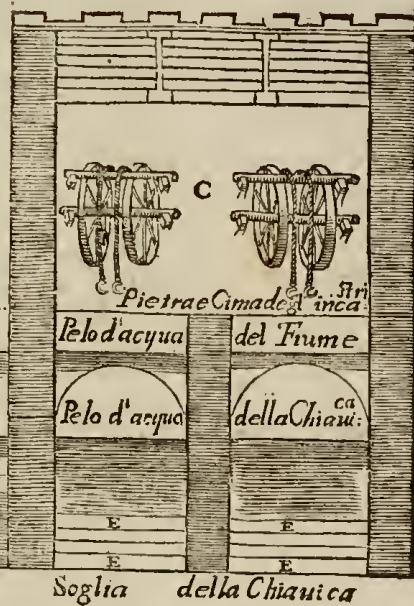 C
Pietra e Cima degl' incastri
Pelo d'acqua del Fiume
Pelo d'acqua della Chiauica
E E
E E
Soglia della Chiauica